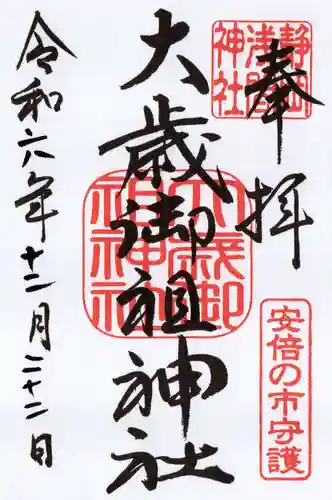 奉拝
静岡浅間神社
安倍の市守護
大歳御祖神社
大歳御祖神社
令和六年十二月二十二日